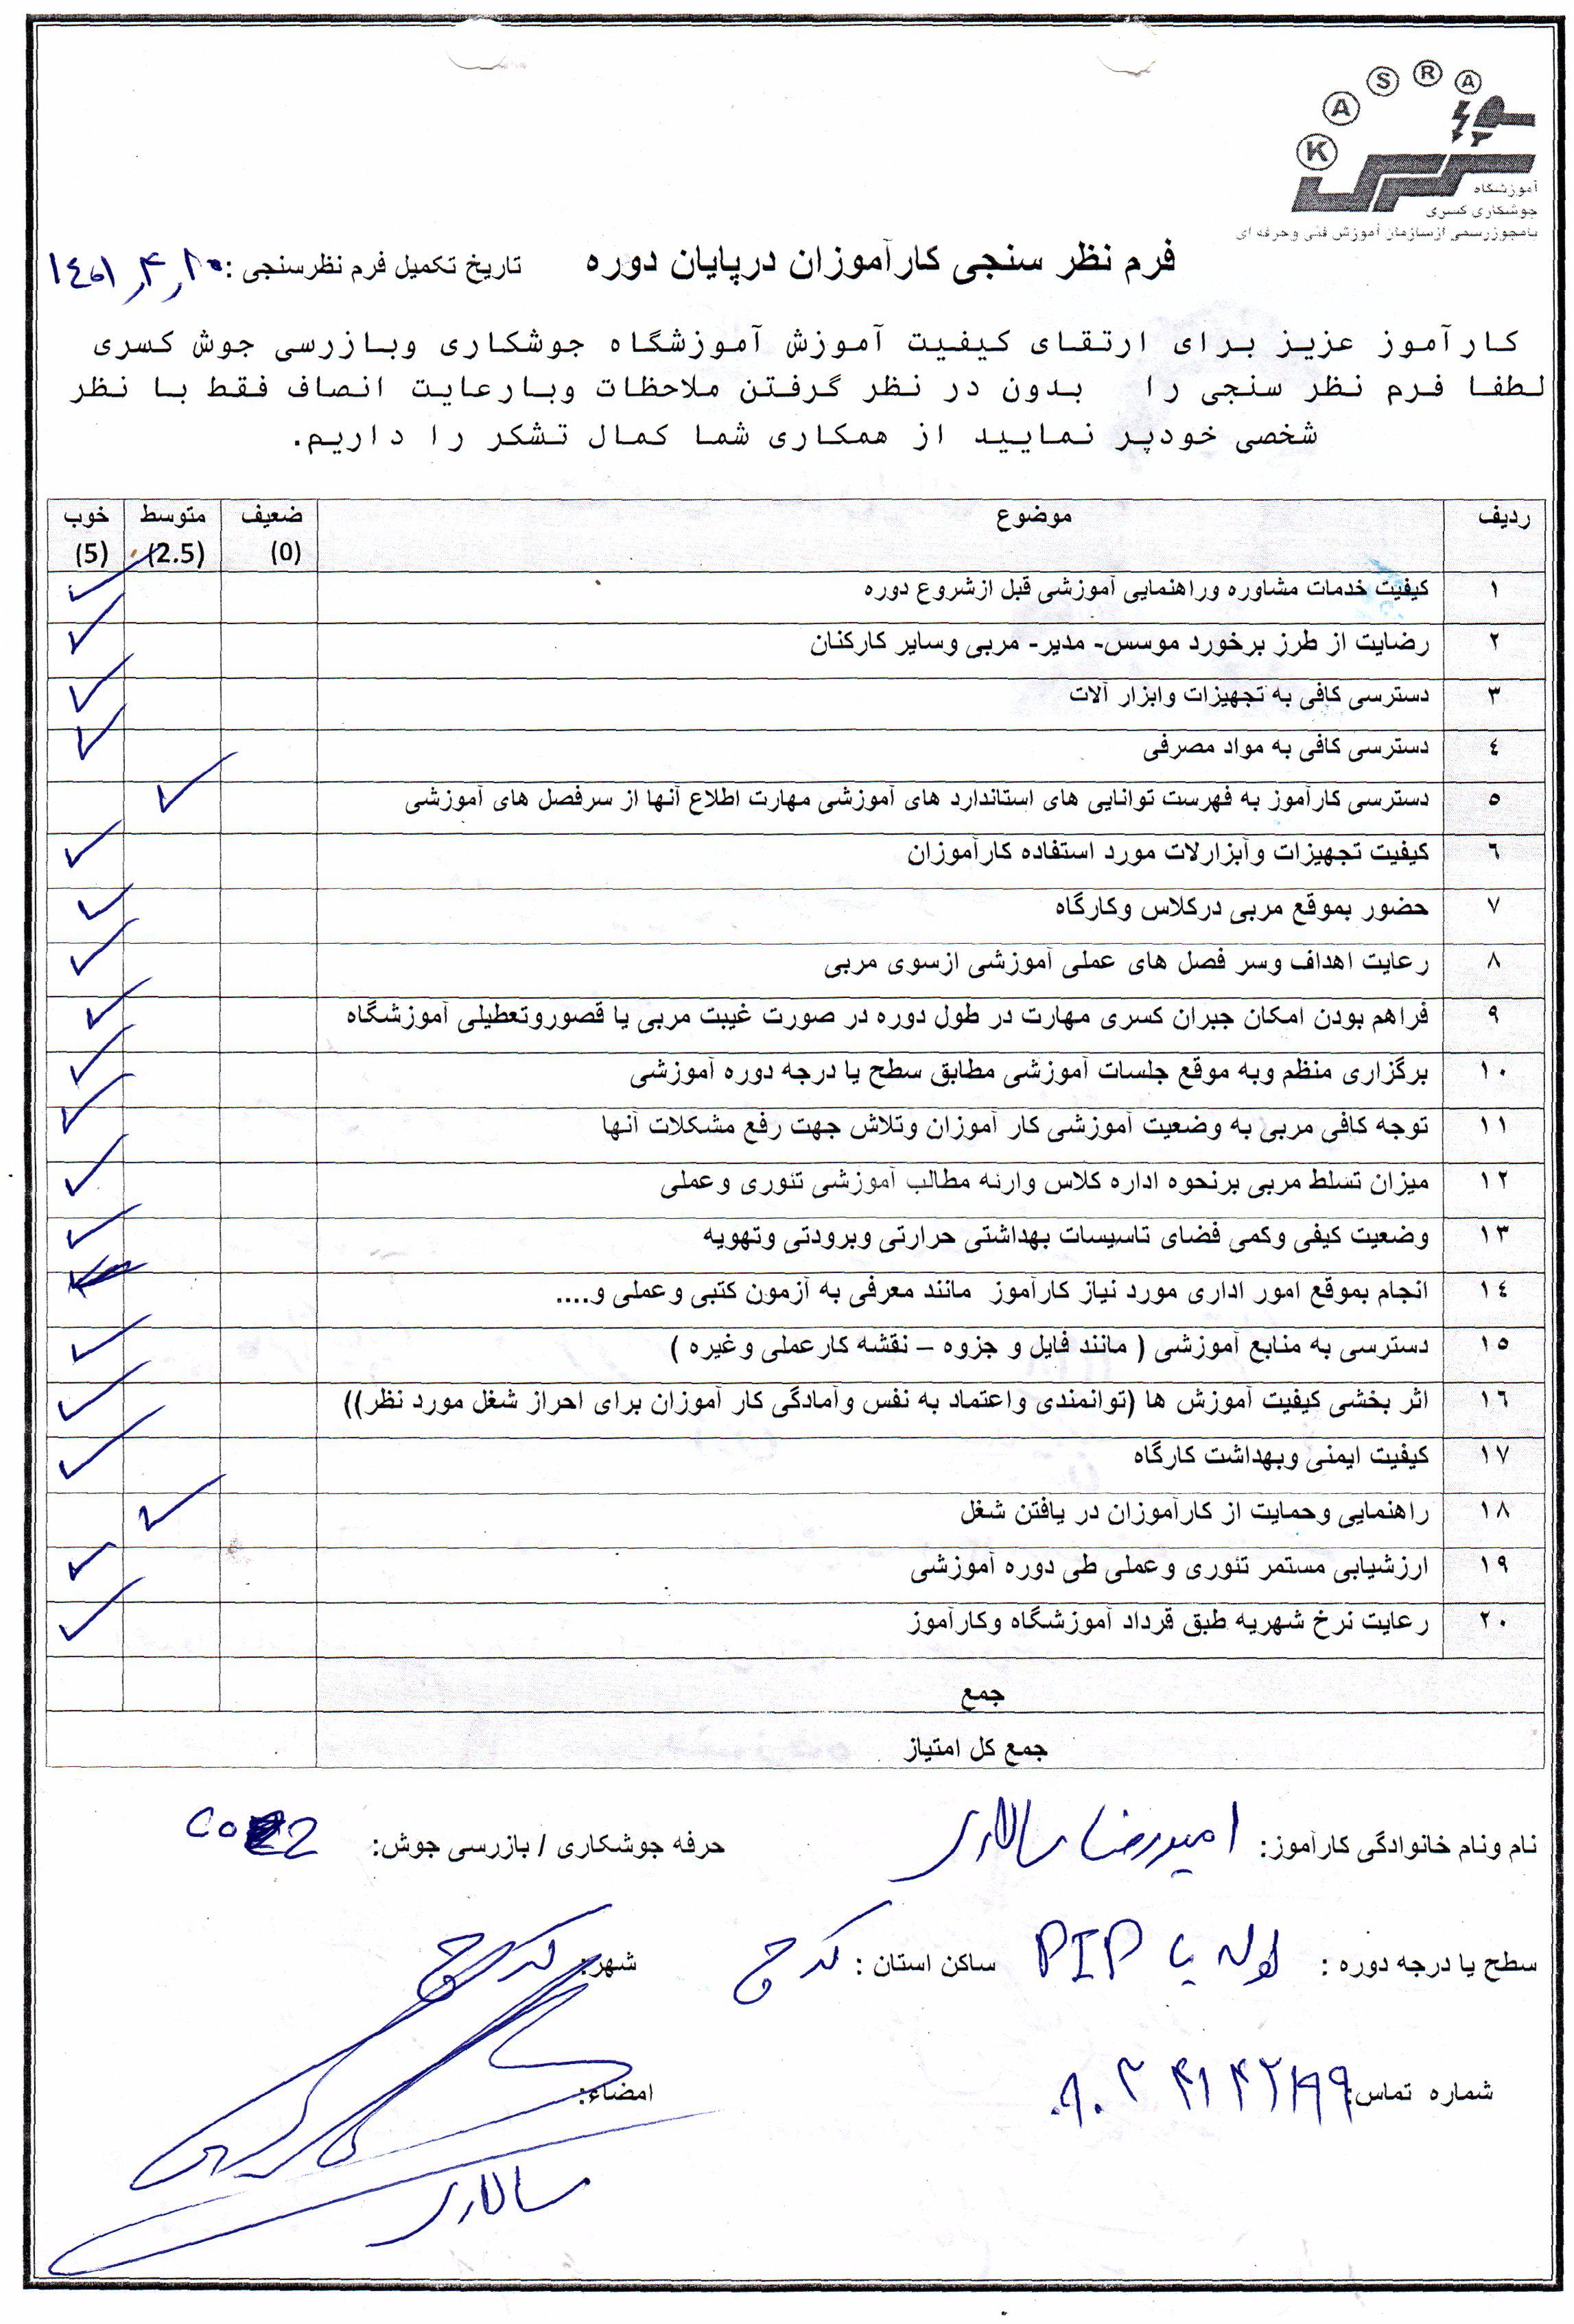 K A S R A
آموزشگاه
جوشکاری کسری
بامجوزرسمی ازسازمان آموزش فنی وحرفه ای
فرم نظر سنجی کارآموزان درپایان دوره تاریخ تکمیل فرم نظرسنجی : ۱۴۰۱,۴,۱۰
کارآموز عزیز برای ارتقای کیفیت آموزش آموزشگاه جوشکاری وبازرسی جوش کسری
لطفا فرم نظر سنجی را بدون در نظر گرفتن ملاحظات وبارعایت انصاف فقط با نظر
شخصی خودپر نمایید از همکاری شما کمال تشکر را داریم.
ردیف موضوع ضعیف (0) متوسط (2.5) خوب (5)
۱ کیفیت خدمات مشاوره وراهنمایی آموزشی قبل ازشروع دوره ✓
۲ رضایت از طرز برخورد موسس- مدیر- مربی وسایر کارکنان ✓
۳ دسترسی کافی به تجهیزات وابزار آلات ✓
٤ دسترسی کافی به مواد مصرفی ✓
٥ دسترسی کارآموز به فهرست توانایی های استاندارد های آموزشی مهارت اطلاع آنها از سرفصل های آموزشی ✓
٦ کیفیت تجهیزات وآبزارلات مورد استفاده کارآموزان ✓
۷ حضور بموقع مربی درکلاس وکارگاه ✓
۸ رعایت اهداف وسر فصل های عملی آموزشی ازسوی مربی ✓
۹ فراهم بودن امکان جبران کسری مهارت در طول دوره در صورت غیبت مربی یا قصوروتعطیلی آموزشگاه ✓
۱۰ برگزاری منظم وبه موقع جلسات آموزشی مطابق سطح یا درجه دوره آموزشی ✓
۱۱ توجه کافی مربی به وضعیت آموزشی کار آموزان وتلاش جهت رفع مشکلات آنها ✓
۱۲ میزان تسلط مربی برنحوه اداره کلاس وارئه مطالب آموزشی تئوری وعملی ✓
۱۳ وضعیت کیفی وکمی فضای تاسیسات بهداشتی حرارتی وبرودتی وتهویه ✓
۱٤ انجام بموقع امور اداری مورد نیاز کارآموز مانند معرفی به آزمون کتبی وعملی و.... ✓
۱٥ دسترسی به منابع آموزشی ( مانند فایل و جزوه – نقشه کارعملی وغیره ) ✓
۱٦ اثر بخشی کیفیت آموزش ها (توانمندی واعتماد به نفس وآمادگی کار آموزان برای احراز شغل مورد نظر)) ✓
۱۷ کیفیت ایمنی وبهداشت کارگاه ✓
۱۸ راهنمایی وحمایت از کارآموزان در یافتن شغل ✓
۱۹ ارزشیابی مستمر تئوری وعملی طی دوره آموزشی ✓
۲۰ رعایت نرخ شهریه طبق قرداد آموزشگاه وکارآموز ✓
جمع
جمع کل امتیاز
نام ونام خانوادگی کارآموز: امیررضا سالاری حرفه جوشکاری / بازرسی جوش:
سطح یا درجه دوره : لوله یا PIP ساکن استان : کرج شهر: کرج
شماره تماس: امضاء:
سالاری